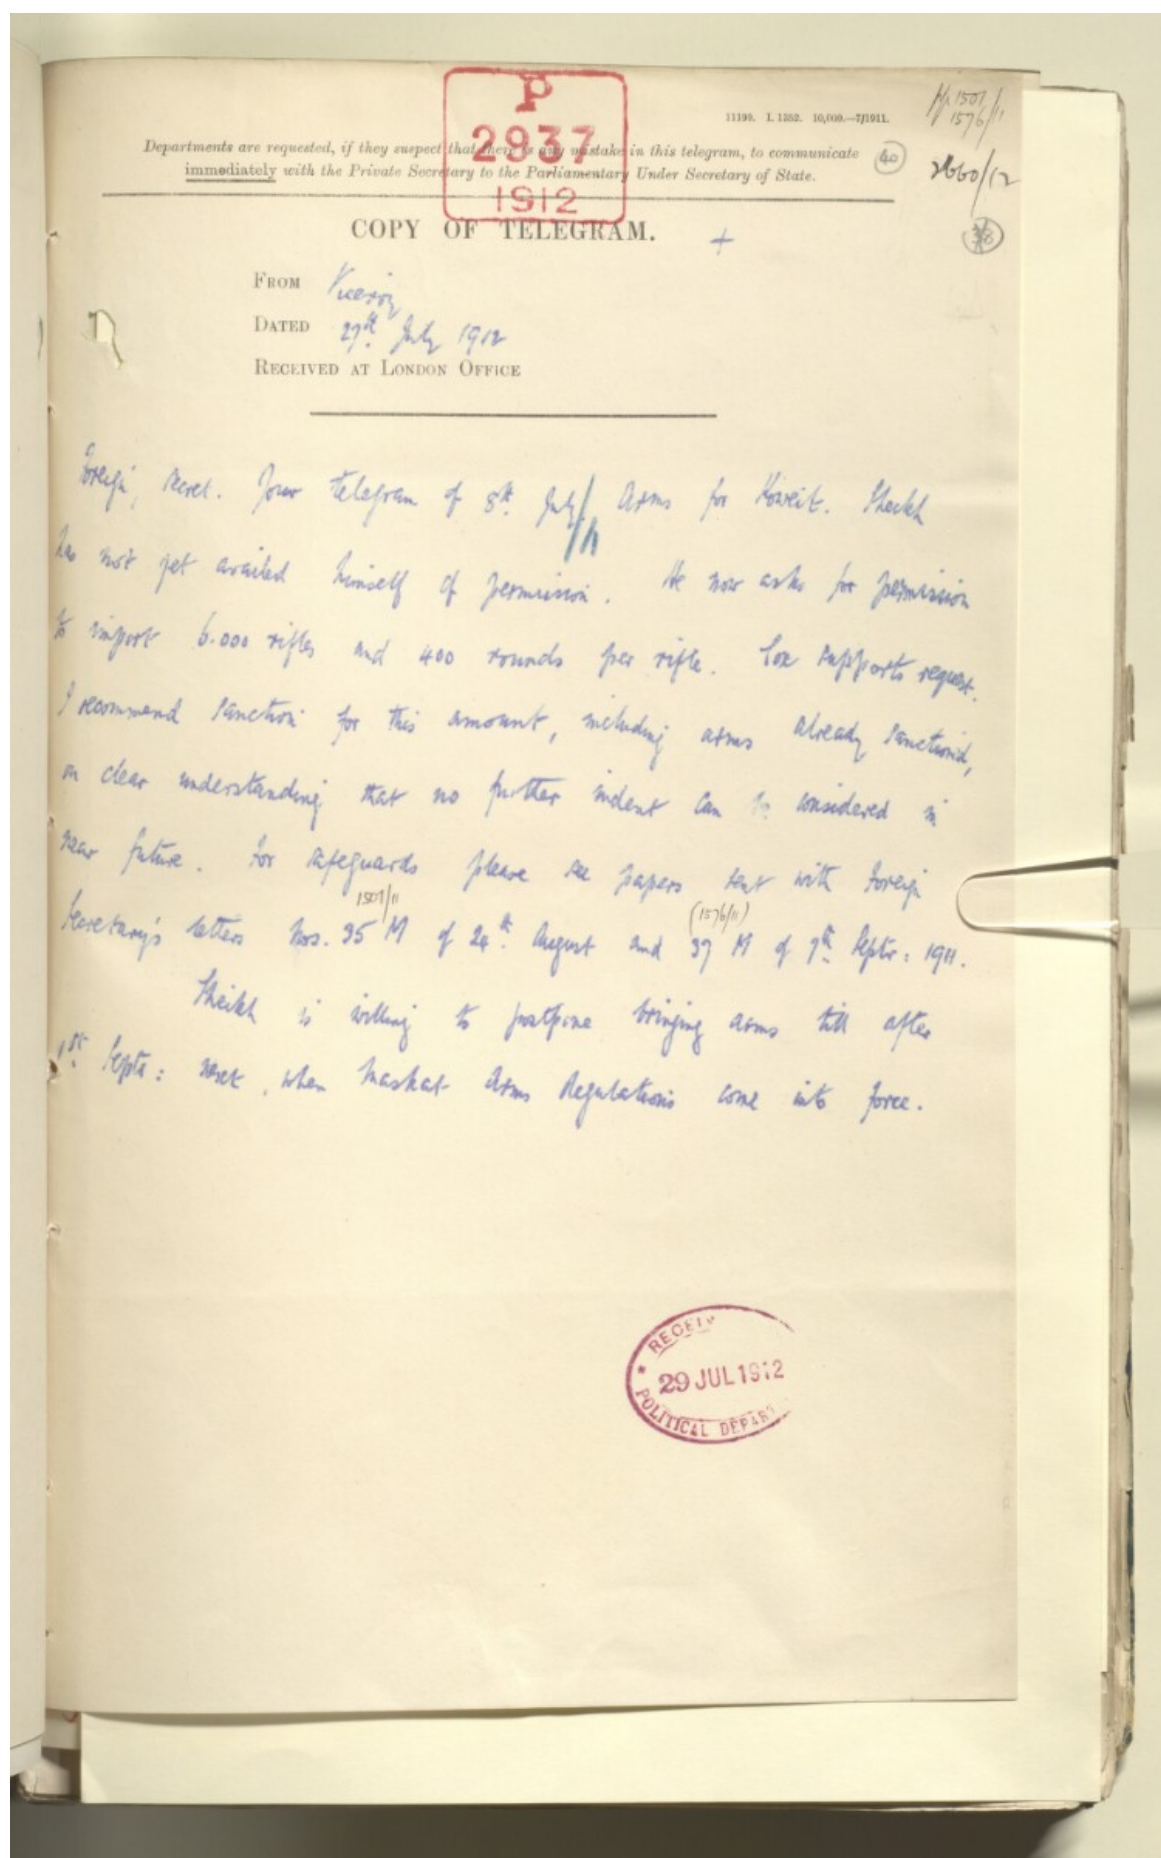 P
2937
1912
11199. I. 1352. 10,000.—7/1911.
pp. 1501/
1576/11
Departments are requested, if they suspect that there is any mistake in this telegram, to communicate
immediately with the Private Secretary to the Parliamentary Under Secretary of State.
40
2660/12
COPY OF TELEGRAM.
+
38
FROM Viceroy
DATED 27th July 1912
RECEIVED AT LONDON OFFICE
Foreign, Secret. Your telegram of 8th July/11. Arms for Koweit. Sheikh
has not yet availed himself of permission. He now asks for permission
to import 6.000 rifles and 400 rounds per rifle. Cox supports request.
I recommend sanction for this amount, including arms already sanctioned,
on clear understanding that no further indent can be considered in
near future. For safeguards please see papers sent with Foreign
1501/11 (1576/11)
Secretary's letters Nos. 35 M of 24th August and 37 M of 7th Septr: 1911.
Sheikh is willing to postpone bringing arms till after
1st Septr: next, when Maskat Arms Regulations come into force.
29 JUL 1912
POLITICAL